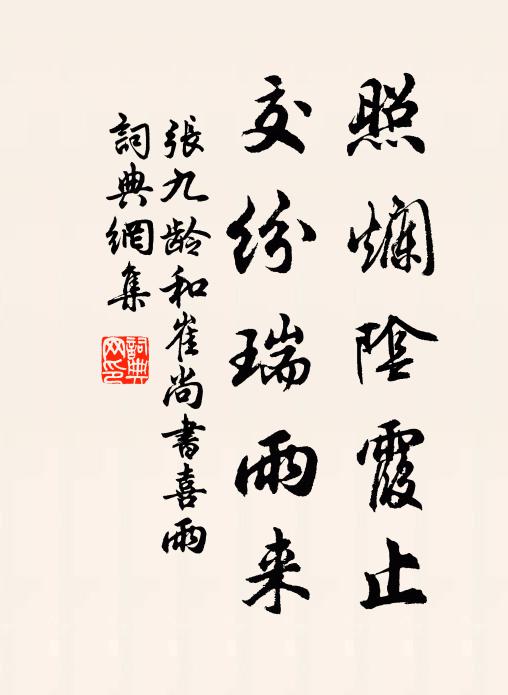 照爛陰霞止
交紛瑞雨来
張九龄和崔尚書喜雨
詞典網集
詞典
网印